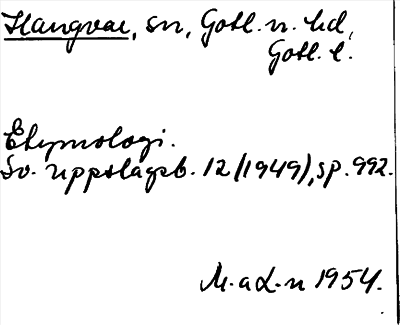 Hangvar, sn, Gotl. n. hd,
Gotl. l.
Etymologi.
Sv. uppslagsb. 12 (1949), sp. 992.
M. a L-n 1954.